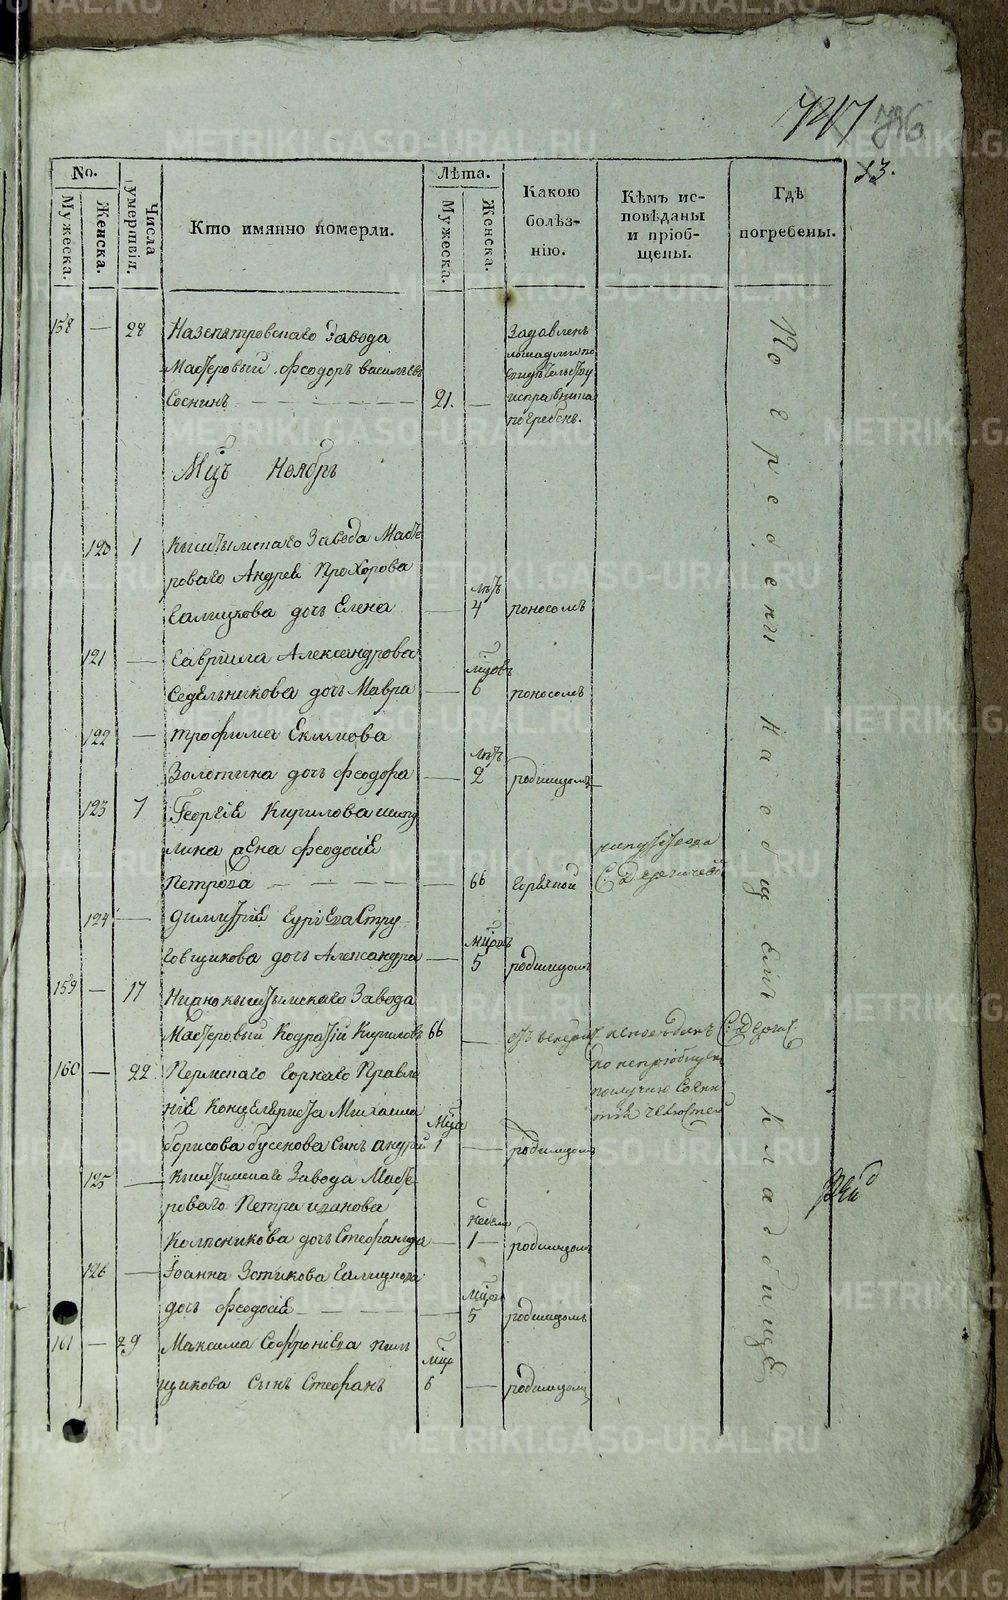 METRIKI.GASO-URAL.RU
747 746
No.
Мужеска.
Женска.
Числа умертвія.
Кто имянно померли.
Лѣта.
Мужеска.
Женска.
Какою болѣз-
нію.
Кѣмъ ис-
повѣданы
и пріоб-
щены.
Гдѣ
погребены.
13.
158 — 28 Назепетровскаго Завода
Мастеровый Феодоръ Васильевъ
Соснинъ — 21. —
Задавленъ
лошадми по
свидѣтельству
исправника
погребенъ.
Мцъ Ноябрь
120 1 Кыштымскаго Завода Масте
роваго Андрея Прохорова
Галицкова дочь Елена — лѣтъ 4 поносомъ
121 — Гаврiила Александрова
Седельникова дочь Мавра — мцовъ 6 поносомъ
122 — Трофима Екимова
Золотина дочь Феодора — лѣтъ 2 родимцомъ
123 7 Георгiя Кирилова
лина жена Феодосiя
Петрова — 66 горячкой
124 — Димитрiя
говщикова дочь Александра — мцовъ 5 родимцомъ
159 — 17 Нижнокыштымскаго Завода
Мастеровый Кодратiй Кириловъ 66 —
160 — 22 Пермскаго Горнаго Правле
нiя Канцеляриста Михаила
Борисова Бусенова Сынъ Андрей мца 1 — родимцомъ
125 — Кыштымскаго Завода Масте
роваго Петра Иванова
Колесникова дочь Стефанида — неделя 1 — родимцомъ
126 — Iоанна Зотикова Галицкова
дочь Феодосiя — мцовъ 5 родимцомъ
161 — 29 Максима Софронiева Пиль
щикова Сынъ Стефанъ мцо 6 — родимцомъ
Погребены на общемъ кладбище